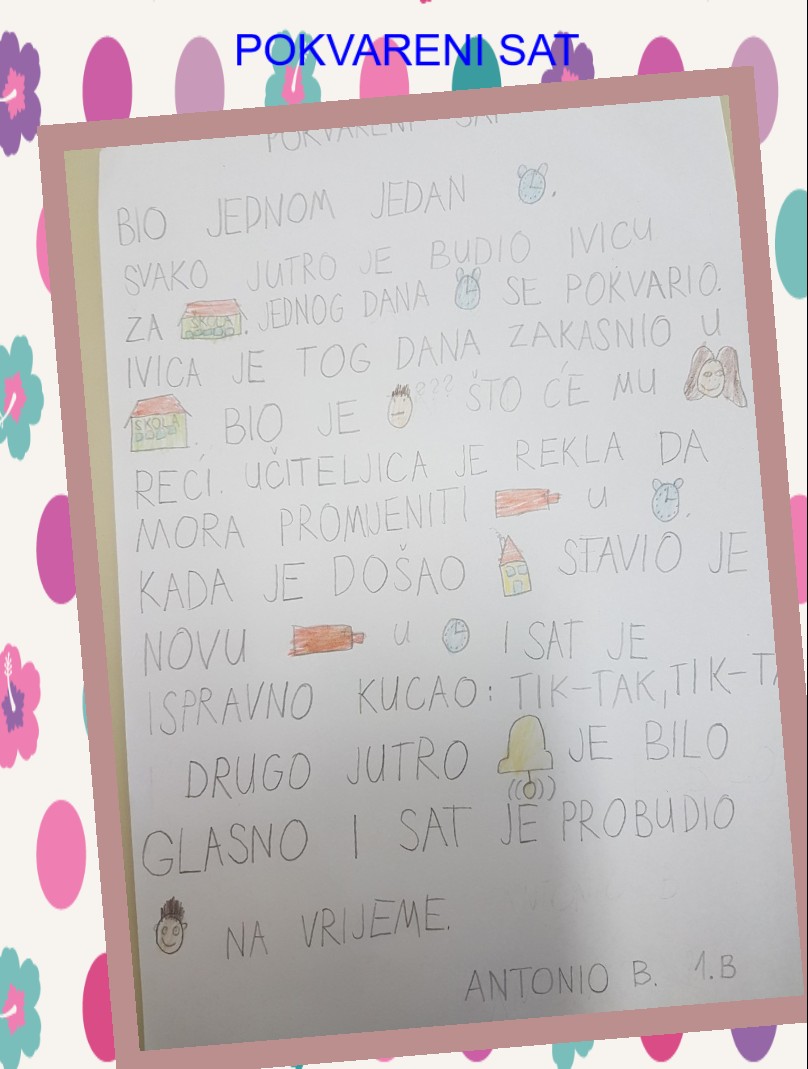 POKVARENI SAT
POKVARENI SAT
BIO JEDNOM JEDAN .
SVAKO JUTRO JE BUDIO IVICU
ZA ŠKOLA. JEDNOG DANA SE POKVARIO.
IVICA JE TOG DANA ZAKASNIO U
ŠKOLA. BIO JE ??? ŠTO ĆE MU
REĆI. UČITELJICA JE REKLA DA
MORA PROMIJENITI U .
KADA JE DOŠAO STAVIO JE
NOVU U I SAT JE
ISPRAVNO KUCAO: TIK-TAK, TIK-TA
DRUGO JUTRO JE BILO
GLASNO I SAT JE PROBUDIO
NA VRIJEME.
ANTONIO B. 1.B